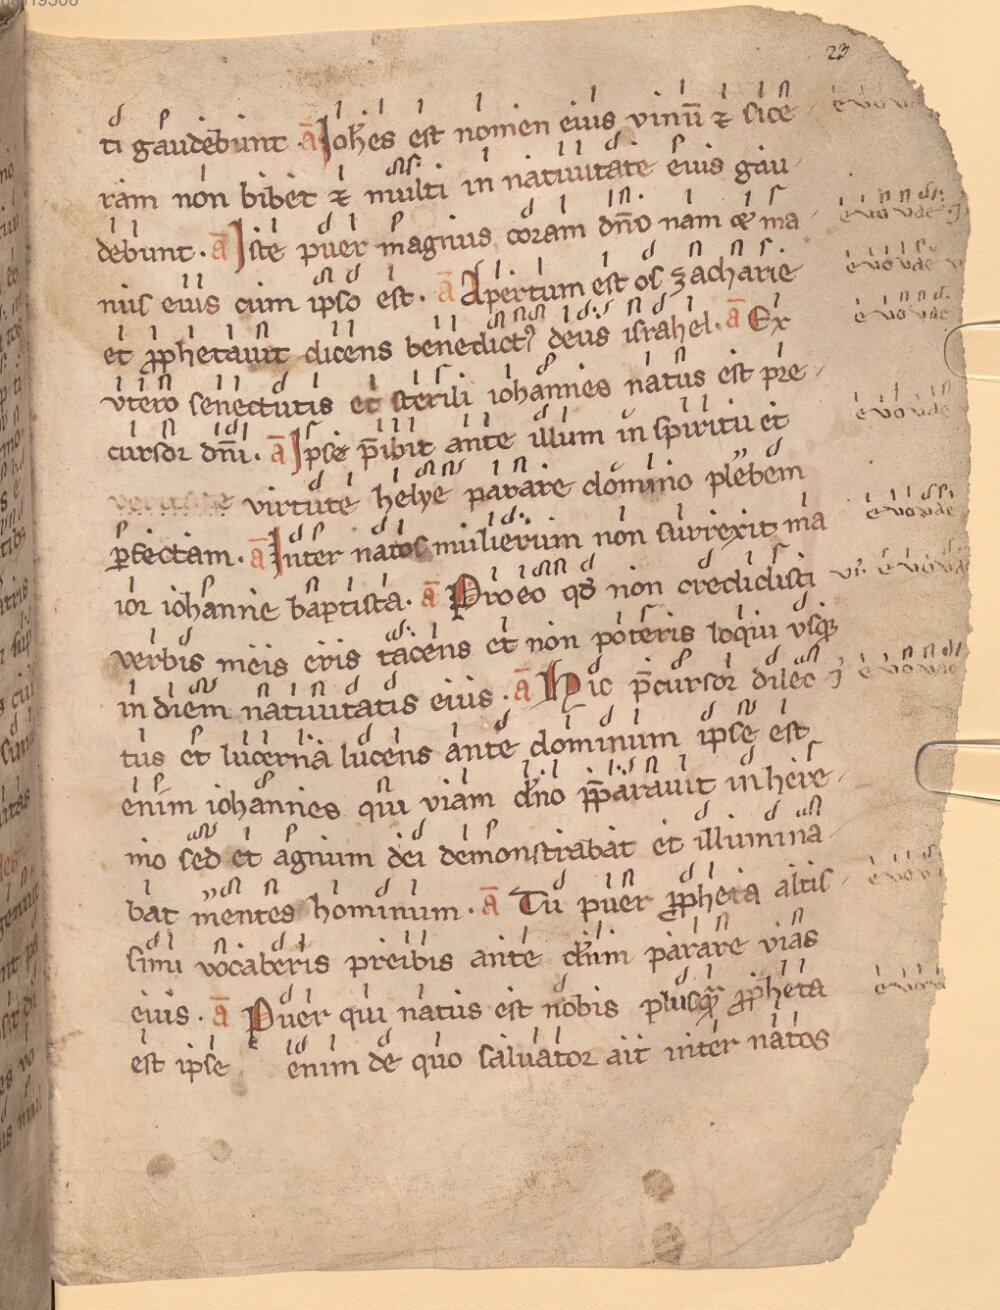 23
ti gaudebunt. a͞ Ioh̅es est nomen eius vinu̅ ⁊ sice
ram non bibet ⁊ multi in natiuitate eius gau
debunt. a͞ Iste puer magnus coram dn̅o nam et ma
nus eius cum ipso est. a͞ Apertum est os zacharie
et ꝓphetauit dicens benedictꝰ deus israhel. a͞ Ex
utero senectutis et sterili iohannes natus est pre
cursor dn̅i. a͞ Ipse p̅ibit ante illum in spiritu et
virtute helye parare domino plebem
ꝑfectam. a͞ Inter natos mulierum non surrexit ma
ior iohanne baptista. a͞ Pro eo qd̅ non credidisti
verbis meis eris tacens et non poteris loqui usqꝫ
in diem natiuitatis eius. a͞ Hic p̅cursor dilec
tus et lucerna lucens ante dominum ipse est
enim iohannes qui viam dn̅o pp̅arauit in here
mo sed et agnum dei demonstrabat et illumina
bat mentes hominum. a͞ Tu puer ꝓpheta altis
simi vocaberis preibis ante dn̅um parare vias
eius. a͞ Puer qui natus est nobis plusqua̅ ꝓpheta
est ipse enim de quo saluator ait inter natos
euouae
euouae
euouae
euouae
euouae
euouae
euouae